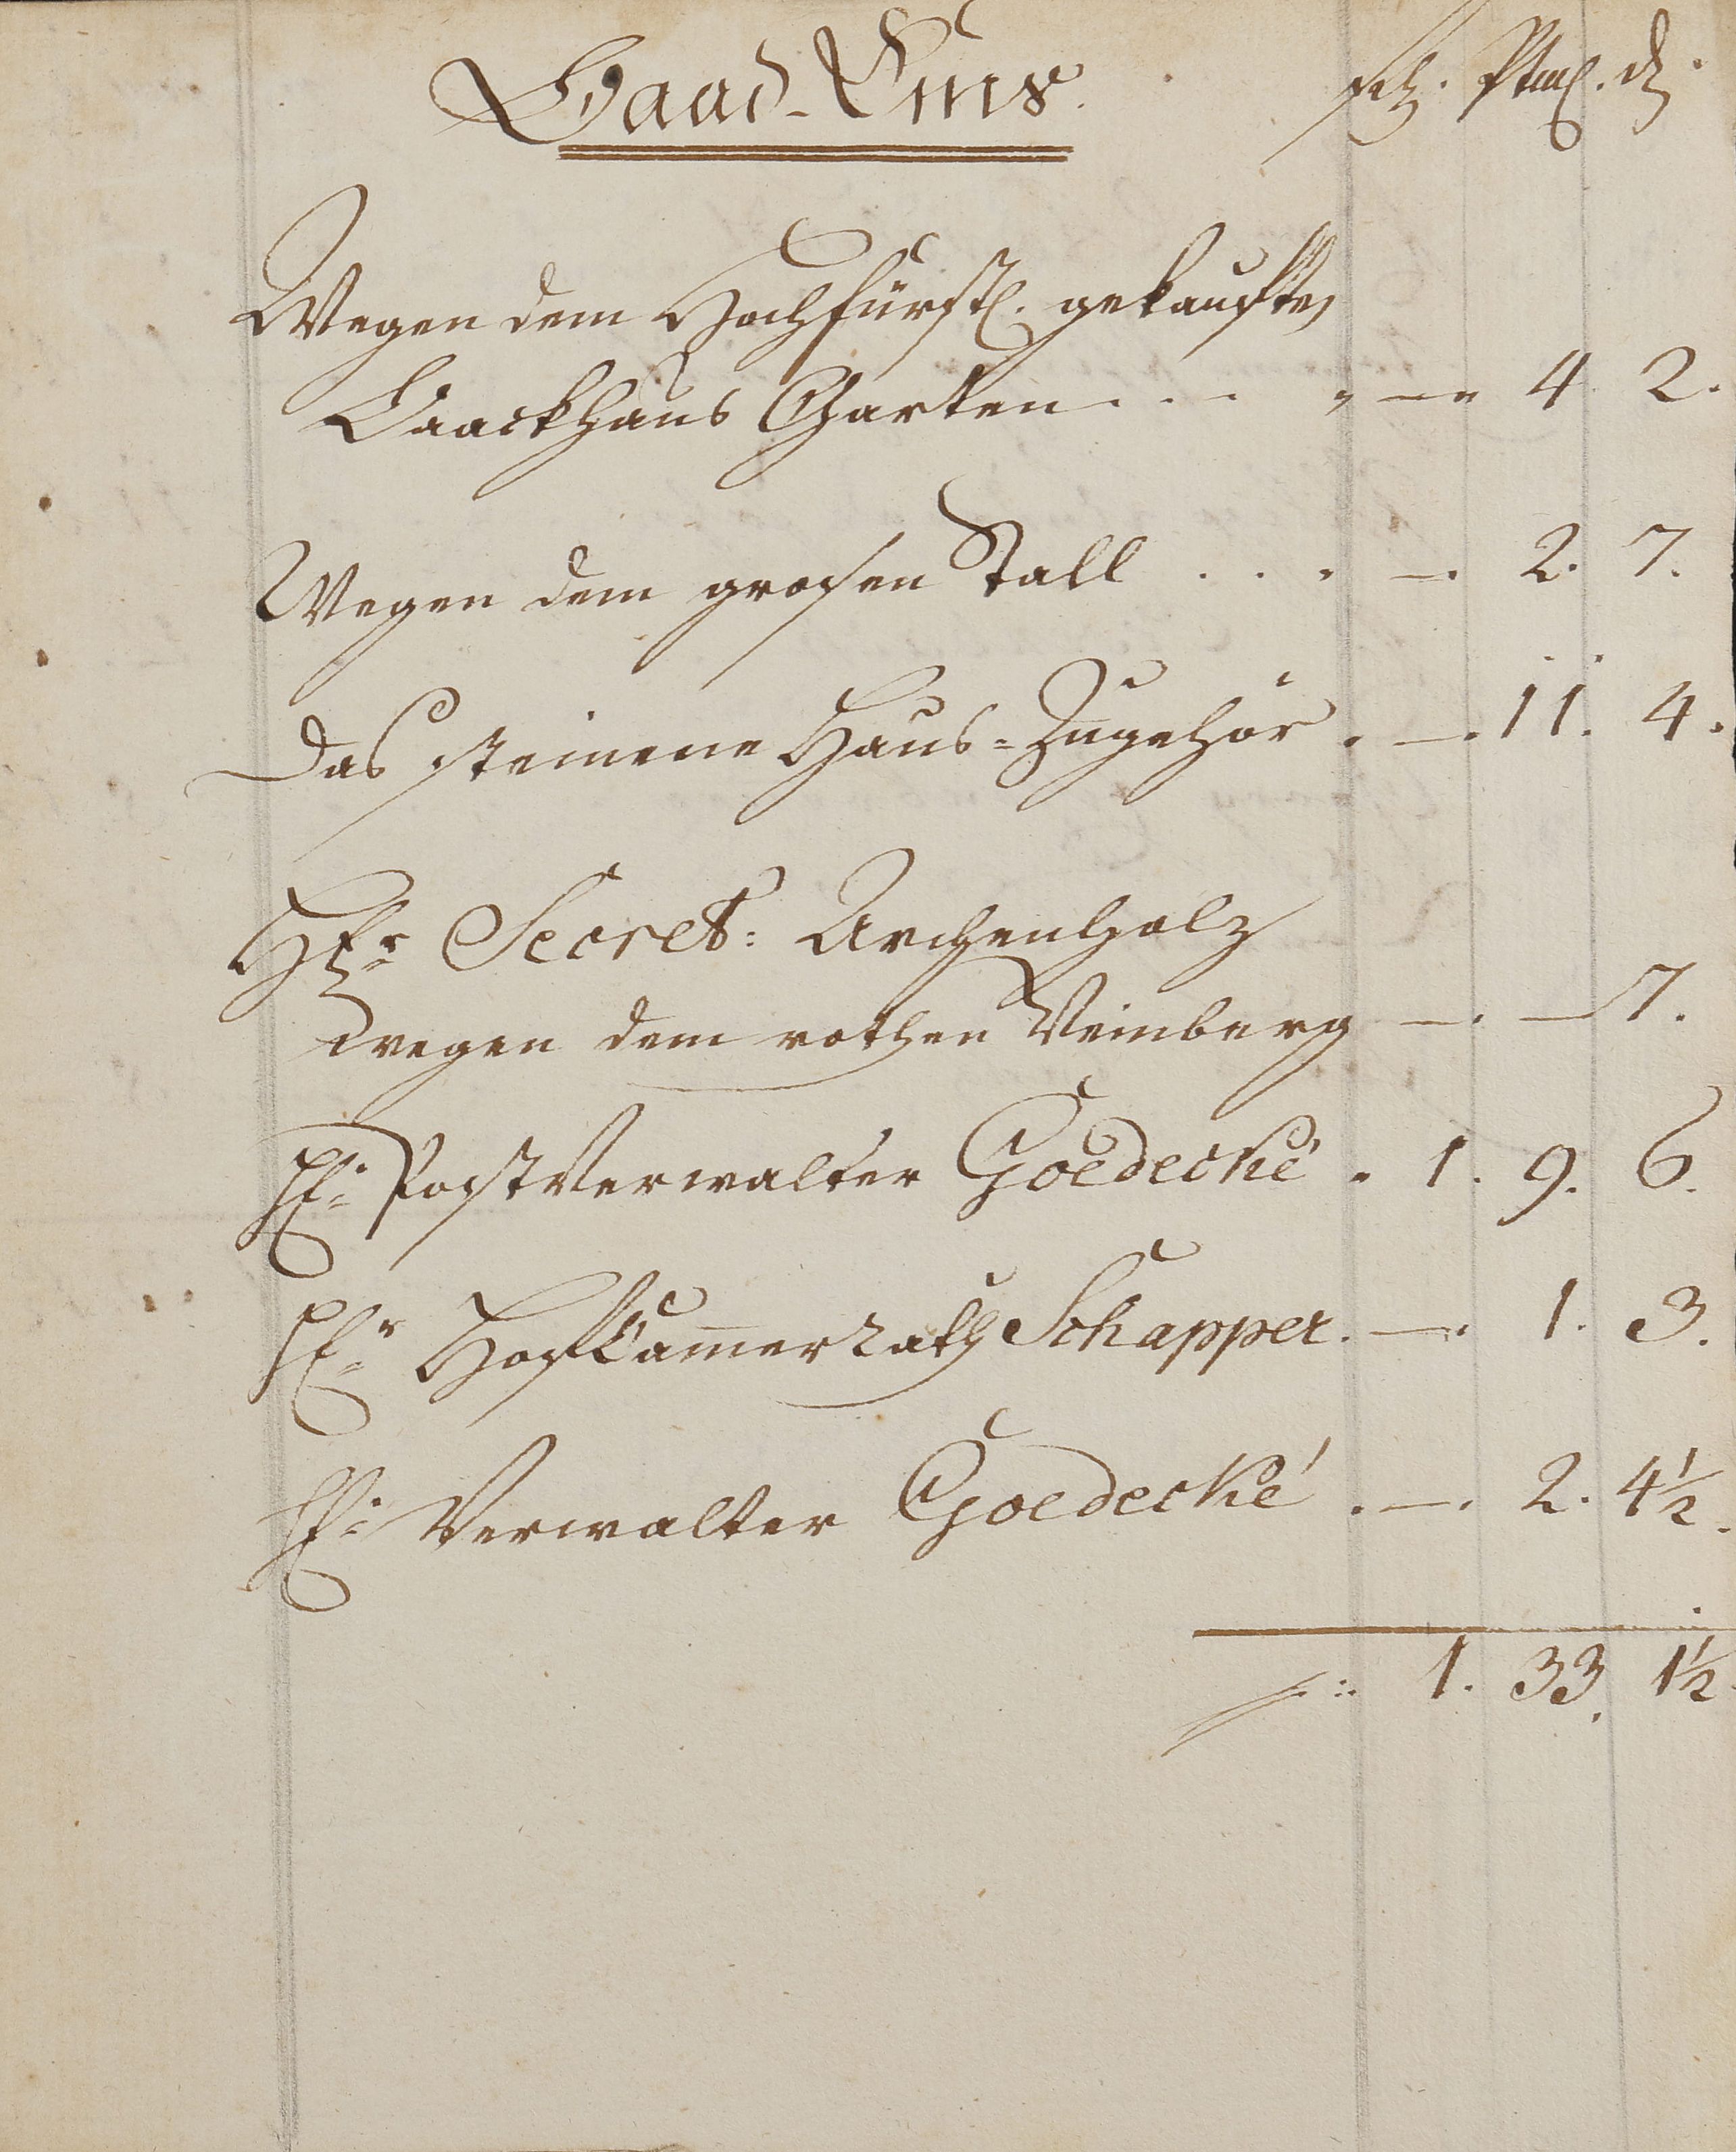 Baad-Ems.
rthl. Ptmß. ₰.
Wegen dem Hochfürstl. gekauften
Baackhaus Garten . . . . — 4. 2.
Wegen dem grosen Stall . . . — 2. 7.
Das steinerne Haus-Zugehör . — 11. 4.
Hr Secret: Archenholz
wegen dem rothen Weinberg — . — 7.
Hr. Postverwalter Goedecké . 1. 9. 6.
Hr. Hofkam̄errath Schapper. — 1. 3.
Hr. Verwalter Goedecké . — 2. 4½.
1. 33. 1½